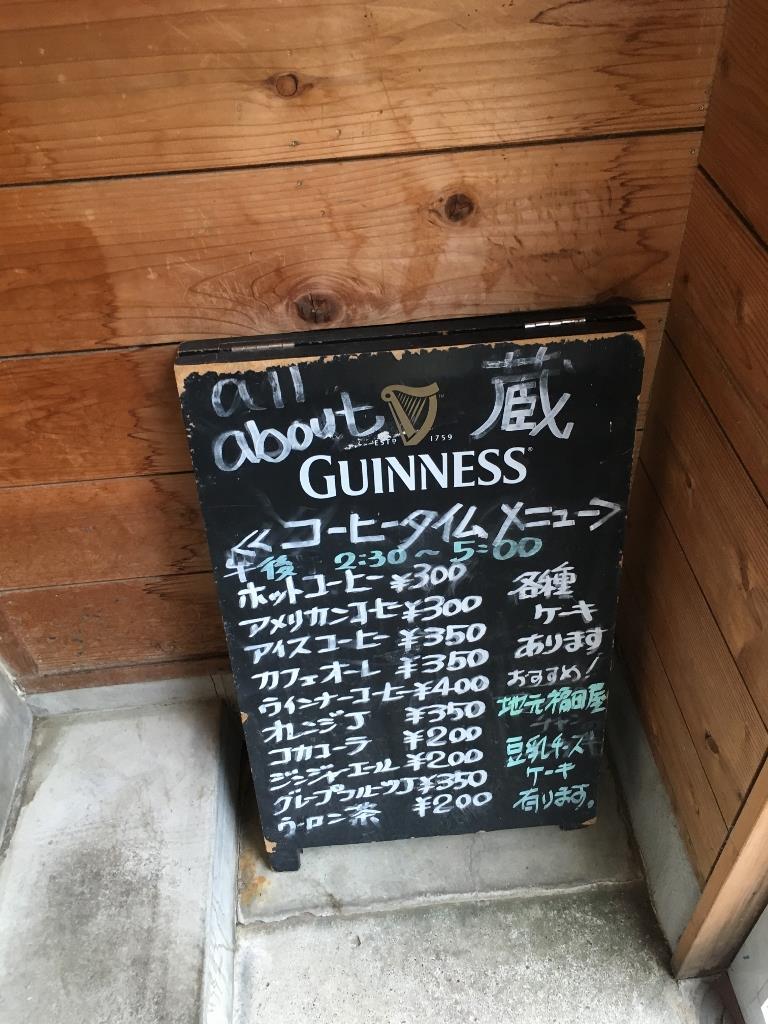 all
about 蔵
ESTD 1759
GUINNESS
≪コーヒータイムメニュー＞
午後 2:30～5:00
ホットコーヒー ¥300
アメリカンコーヒ ¥300
アイスコーヒー ¥350
カフェオーレ ¥350
ウインナーコーヒー ¥400
オレンジJ ¥350
コカコーラ ¥200
ジンジャーエール ¥200
グレープフルーツJ ¥350
ウーロン茶 ¥200
各種
ケーキ
あります
おすすめ!
地元福田屋
豆乳チーズ
ケーキ
有ります。